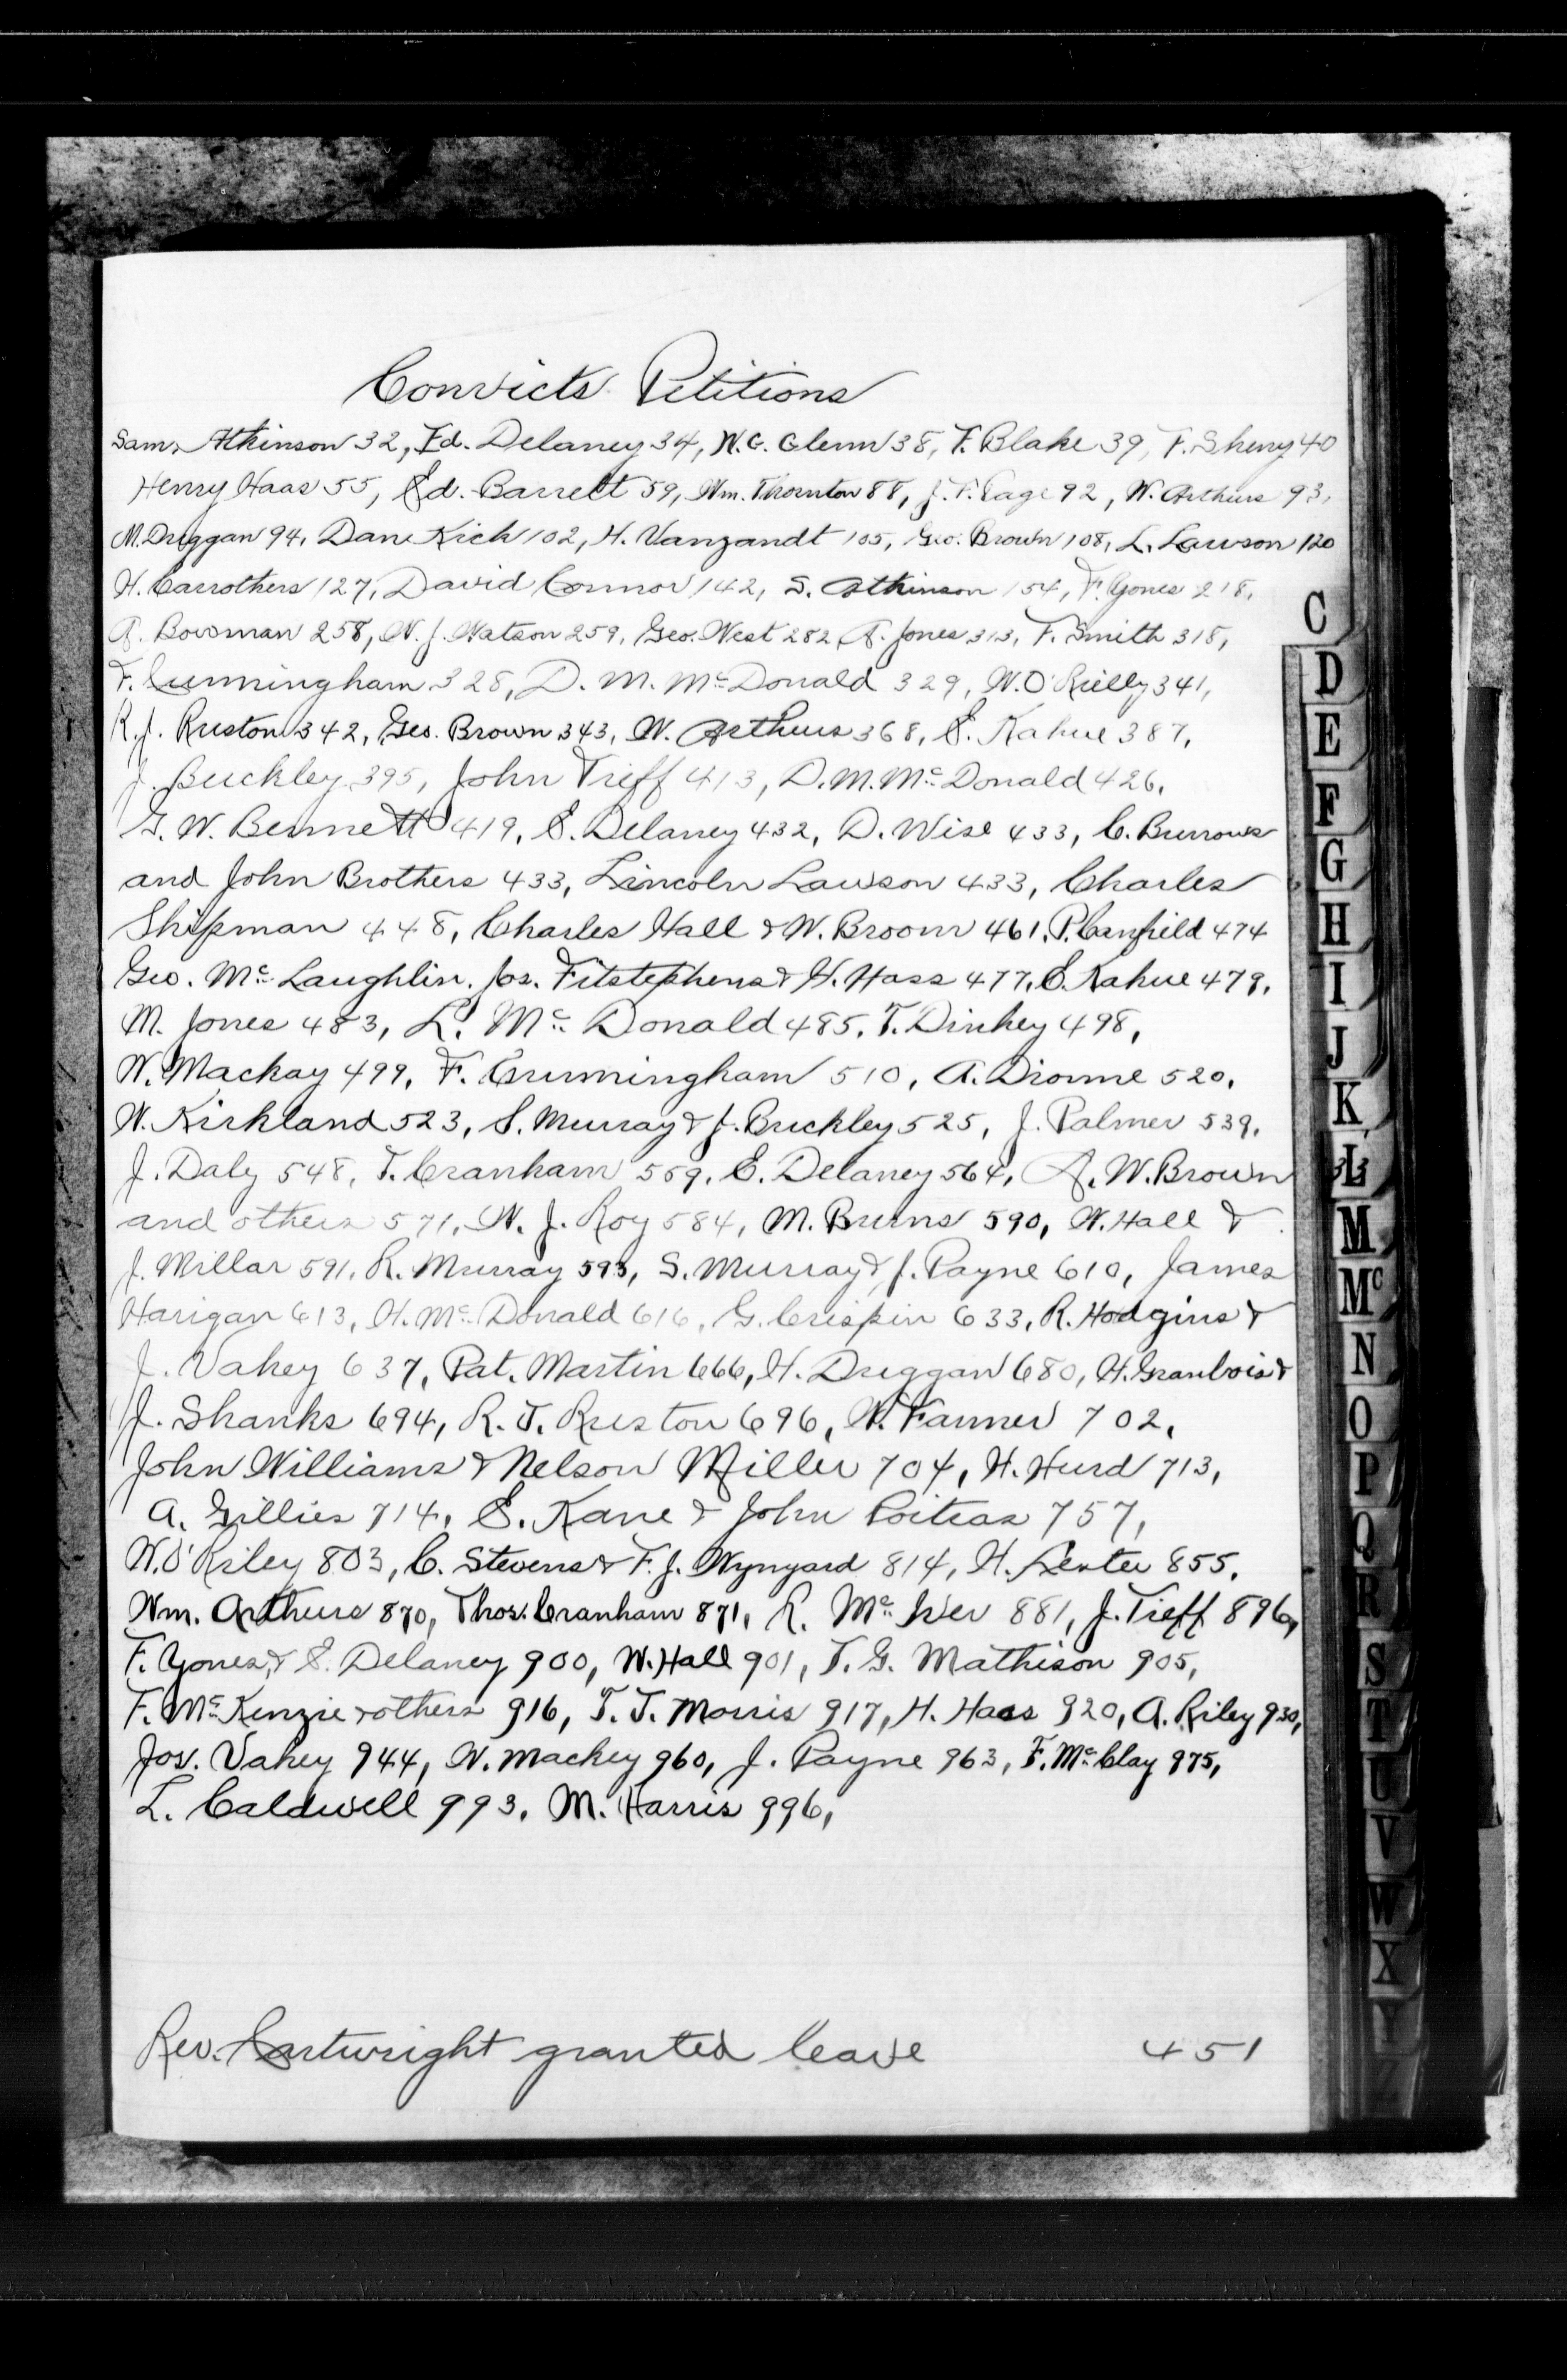 Convicts Petitions
Sam. Atkinson 32, Ed. Delaney 34, W.G. Glenn 38, F. Blake 39, F. Sherry 40
Henry Haas 55, Ed. Barrett 59, Wm. Thornton 88, J.F. Page 92, W. Arthurs 93,
M. Duggan 94, Dan Kick 102, H. Vanzandt 105, Geo. Brown 108, L. Lawson 120
H. Carrothers 127, David Connor 142, S. Atkinson 154, F. Yones 218,
A. Bowman 258, W.J. Watson 259, Geo. West 282, A. Jones 313, F. Smith 318,
F. Cunningham 328, D.M. McDonald 329, W. O'Reilly 341,
R.J. Ruston 342, Geo. Brown 343, W. Arthurs 368, E. Kahue 387,
J. Buckley 395, John Tieff 413, D.M. McDonald 426,
G.W. Bennett 419, E. Delaney 432, D. Wise 433, C. Burrows
and John Brothers 433, Lincoln Lawson 433, Charles
Shipman 448, Charles Hall & W. Broom 461, P. Canfield 474
Geo. McLaughlin, Jos. Fitstephens & H. Hass 477, E. Kahue 479,
M. Jones 483, L. McDonald 485, T. Dinkey 498,
W. Mackay 499, F. Cunningham 510, A. Dionne 520,
W. Kirkland 523, S. Murray & J. Buckley 525, J. Palmer 539,
J. Daly 548, T. Cranham 559, E. Delaney 564, A.W. Brown
and others 571, W.J. Roy 584, M. Burns 590, W. Hall &
J. Millar 591, R. Murray 593, S. Murray & J. Payne 610, James
Harigan 613, H. McDonald 616, G. Crispin 633, R. Hodgins &
J. Vahey 637, Pat. Martin 666, H. Duggan 680, H. Granbois &
J. Shanks 694, R.J. Ruston 696, W. Farmer 702,
John Williams & Nelson Miller 704, H. Hurd 713,
A. Gillies 714, E. Kane & John Poitras 757,
W. O'Riley 803, C. Stevens & F.J. Wynyard 814, H. Lester 855,
Wm. Arthurs 870, Thos. Cranham 871, R. McIver 881, J. Tieff 896,
F. Yones & E. Delaney 900, W. Hall 901, T.G. Mathison 905,
F. McKenzie & others 916, T.J. Morris 917, H. Haas 920, A. Riley 930,
Jos. Vahey 944, W. Mackey 960, J. Payne 963, F. McClay 975,
L. Caldwell 993, M. Harris 996,
Rev. Cartwright granted leave 451
C
D
E
F
G
H
I
J
K
L
M
Mc
N
O
P
Q
R
S
T
U
V
W
X
Y
Z